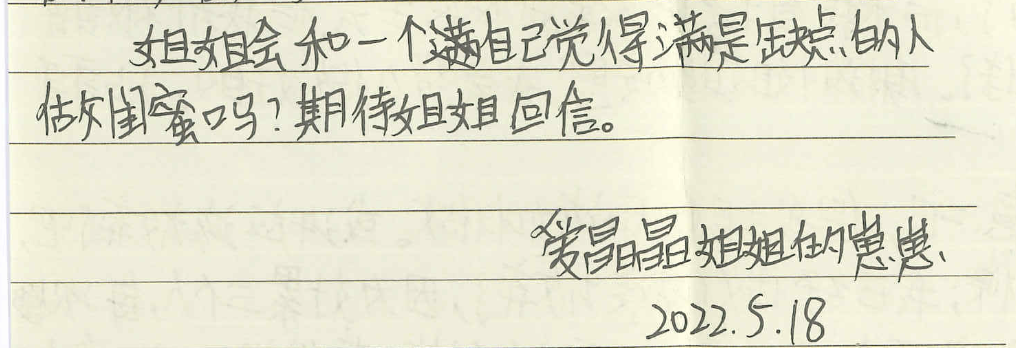 姐姐会和一个满自己觉得满是缺点的人
做闺蜜吗?期待姐姐回信。
爱晶晶姐姐的崽崽、
2022.5.18